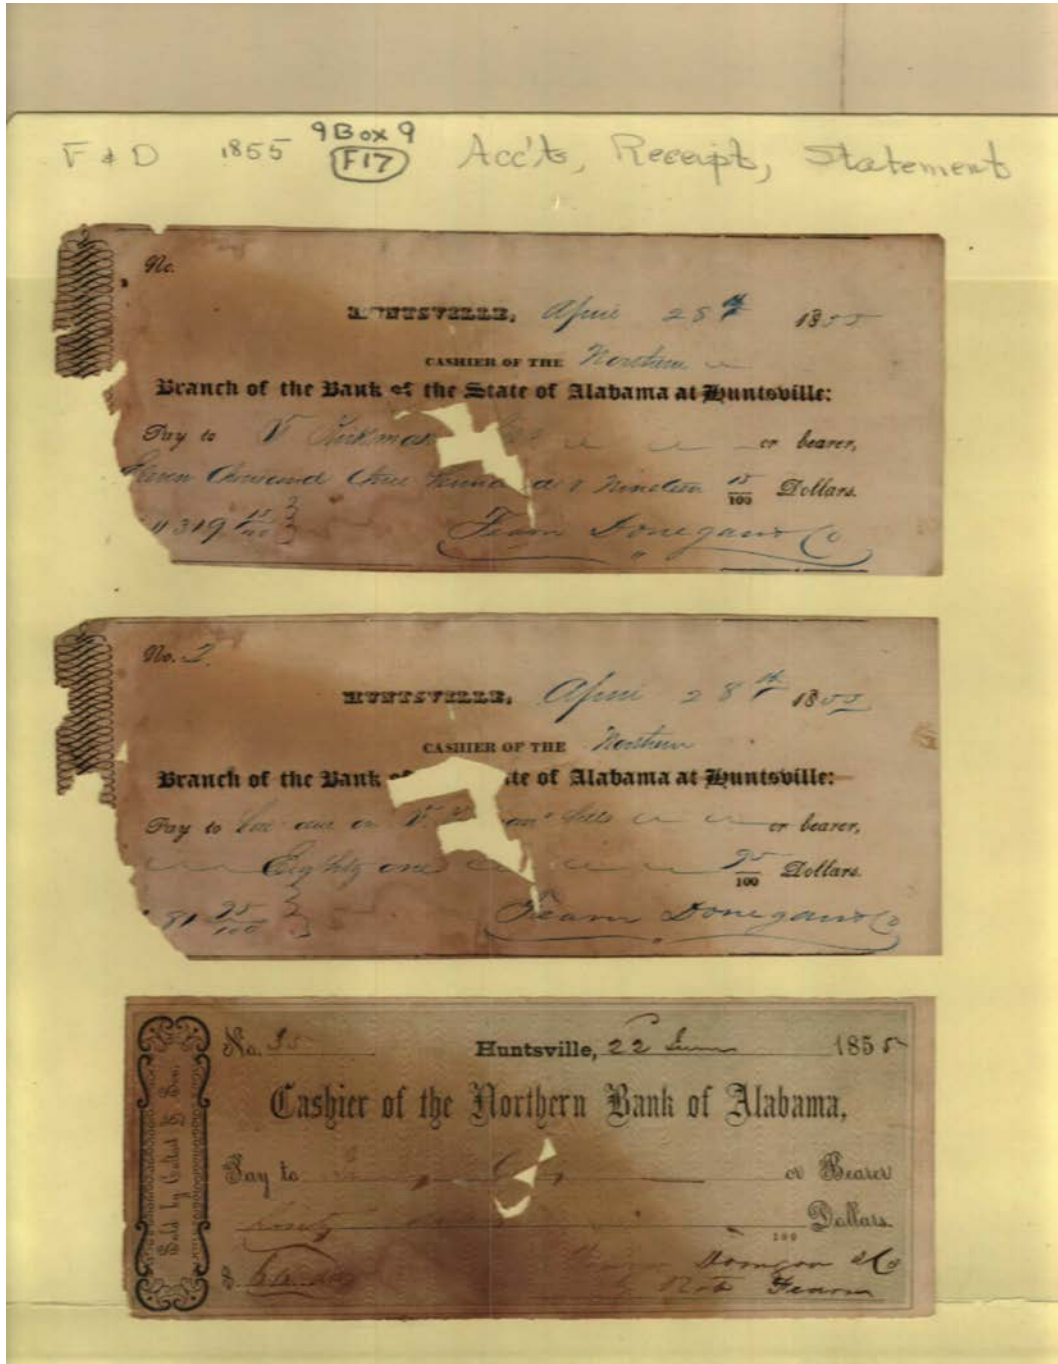 9 Box 9
F & D 1855 F17 Acc'ts, Receipt, Statement
No.
HUNTSVILLE, April 28th 1855
CASHIER OF THE Northern
Branch of the Bank of the State of Alabama at Huntsville:
Pay to V Kirkman or bearer,
Eleven thousand three hund and Nineteen 15/100 Dollars.
11319 15/100
Fearn Donegan & Co
No. 2.
HUNTSVILLE, April 28th 1855
CASHIER OF THE Northern
Branch of the Bank of te of Alabama at Huntsville:
Pay to on V. or bearer,
Eighty one 95/100 Dollars.
81 95/100
Fearn Donegan & Co
Sold by Coltart & Son.
No. Huntsville, 22 June 1855
Cashier of the Northern Bank of Alabama,
Pay to or Bearer
Sixty 100 Dollars.
$ 60
Fearn Donegan & Co
Fearn